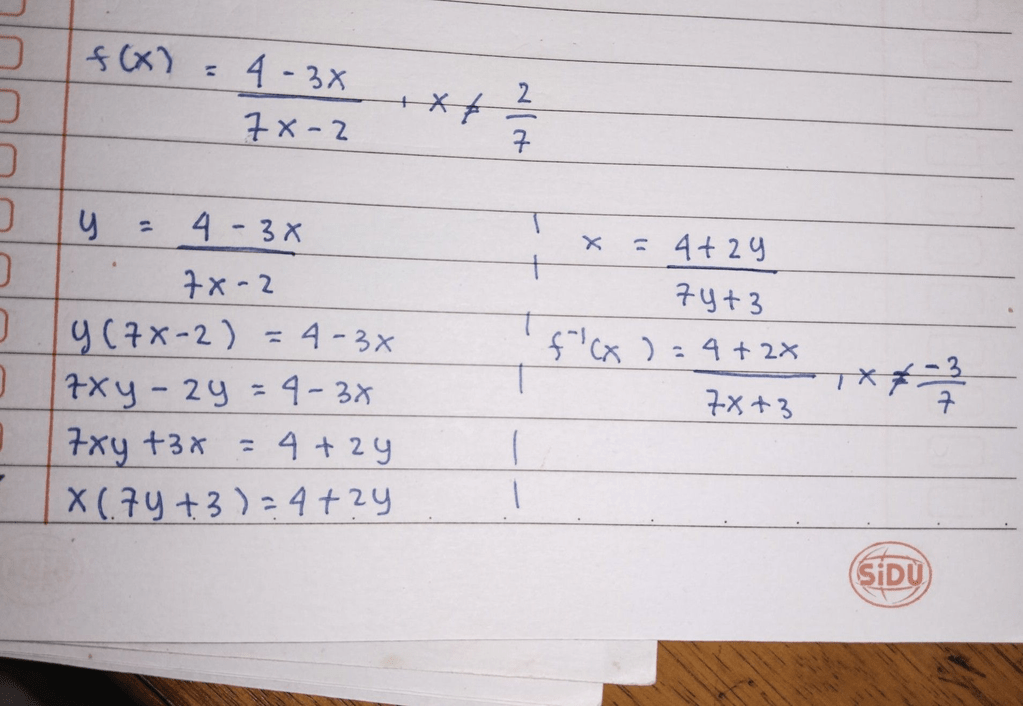 f(x) = 4 - 3x / 7x - 2 , x ≠ 2/7
y = 4 - 3x / 7x - 2
y(7x-2) = 4 - 3x
7xy - 2y = 4 - 3x
7xy + 3x = 4 + 2y
x(7y+3) = 4 + 2y
x = 4 + 2y / 7y + 3
f⁻¹(x) = 4 + 2x / 7x + 3 , x ≠ -3/7
SiDU